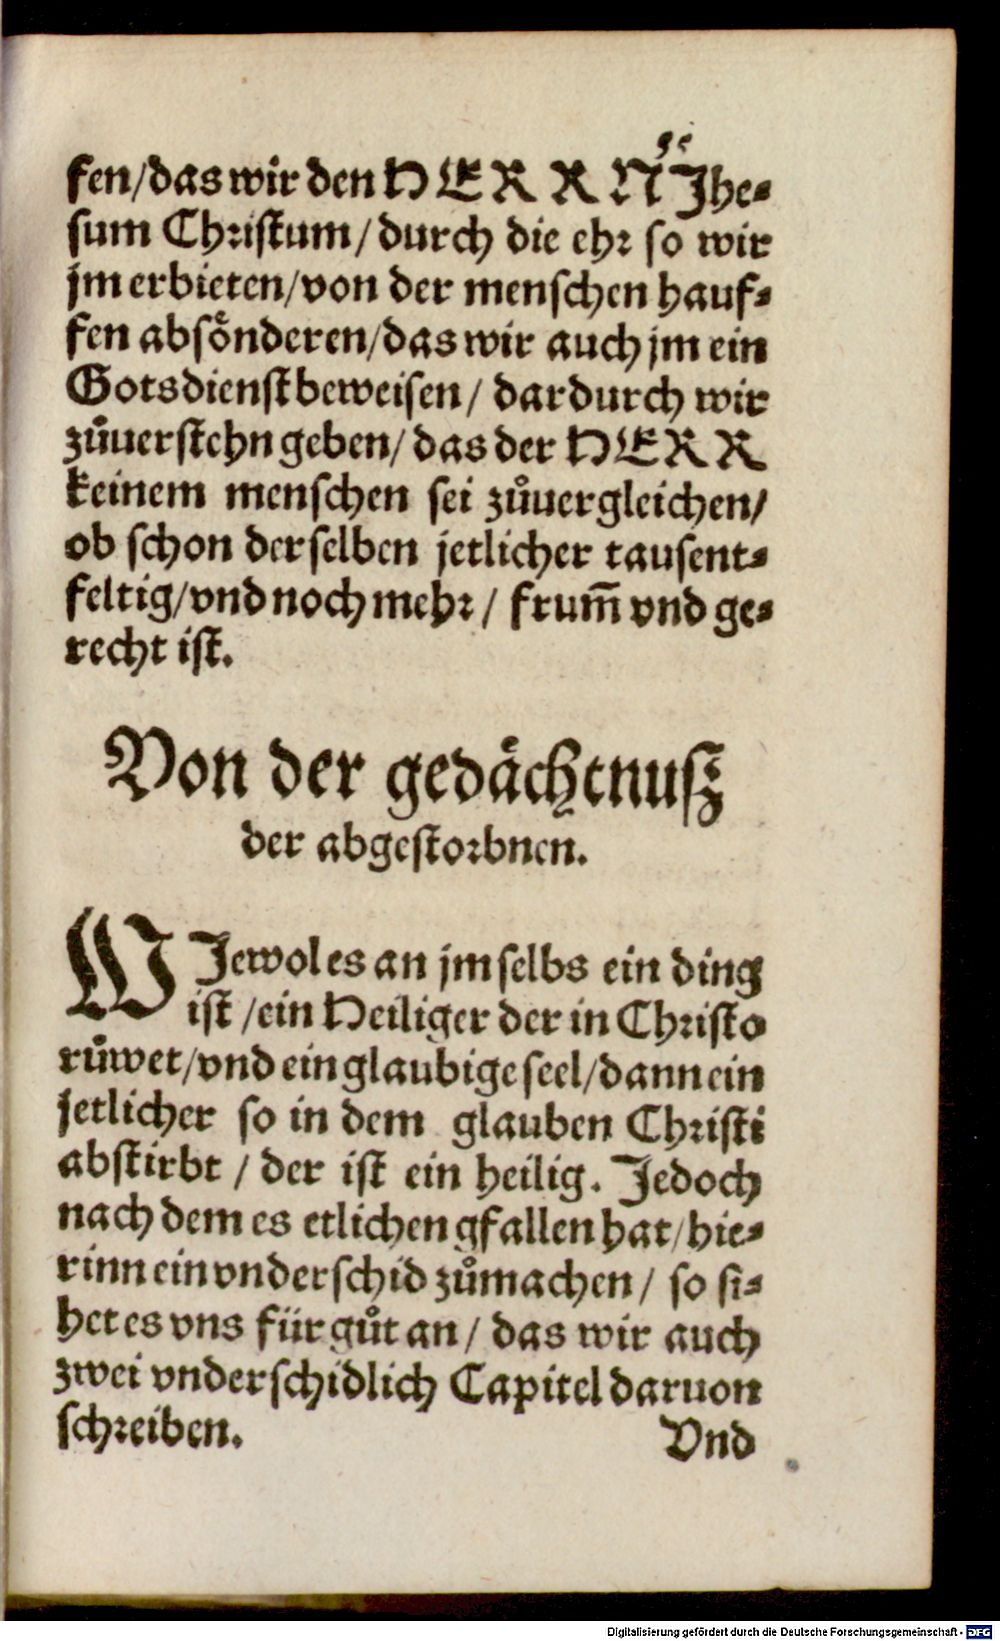 fen/das wir den HERRN Jhe-
sum Christum/durch die ehr so wir
jm erbieten/von der menschen hauf-
fen absönderen/das wir auch jm ein
Gotsdienst beweisen/ dardurch wir
zůuerstehn geben/ das der HERR
keinem menschen sei zůuergleichen/
ob schon derselben jetlicher tausent-
feltig/vnd noch mehr/ frum̄ vnd ge-
recht ist.
Von der gedächtnusz
der abgestorbnen.
WJewol es an jm selbs ein ding
ist/ein Heiliger der in Christo
růwet/vnd ein glaubige seel/dann ein
jetlicher so in dem glauben Christi
abstirbt/ der ist ein heilig. Jedoch
nach dem es etlichen gfallen hat/hie-
rinn ein vnderschid zůmachen/ so si-
het es vns für gůt an/ das wir auch
zwei vnderschidlich Capitel daruon
schreiben.
Vnd
Digitalisierung gefördert durch die Deutsche Forschungsgemeinschaft - DFG